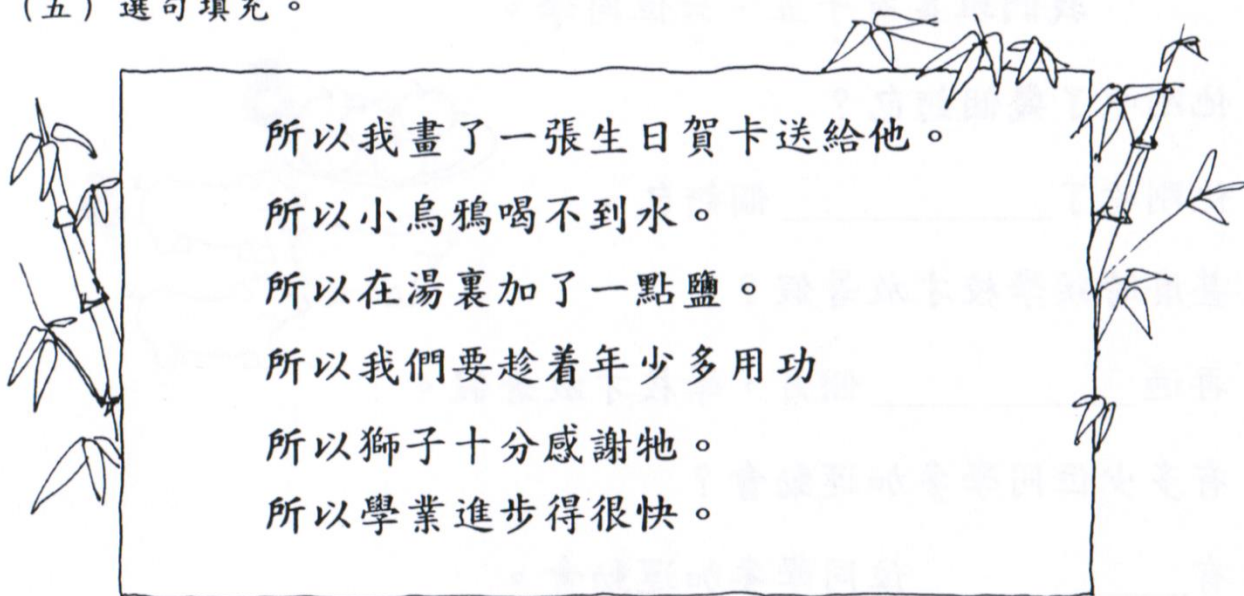 (五)選句填充。
所以我畫了一張生日賀卡送給他。
所以小烏鴉喝不到水。
所以在湯裏加了一點鹽。
所以我們要趁着年少多用功
所以獅子十分感謝牠。
所以學業進步得很快。